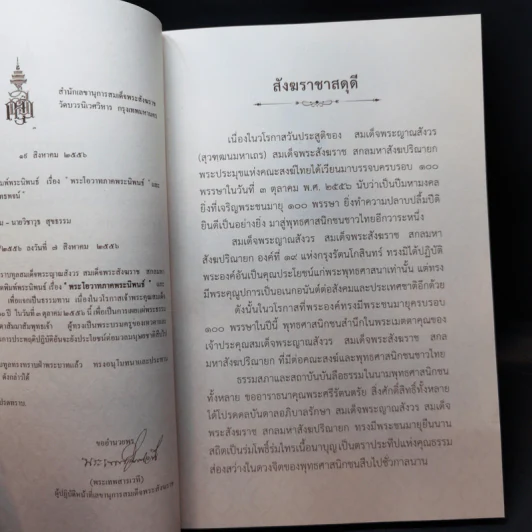 สำนักเลขานุการสมเด็จพระสังฆราช
วัดบวรนิเวศวิหาร กรุงเทพมหานคร
๑๙ สิงหาคม ๒๕๕๖
พิมพ์พระนิพนธ์ เรื่อง "พระโอวาทภาคพระนิพนธ์" และ
นายวิชาวุธ สุขธรรม
/๒๕๕๖ ลงวันที่ ๗ สิงหาคม ๒๕๕๖
ราบทูลสมเด็จพระญาณสังวร สมเด็จพระสังฆราช สกลมหา
เรื่อง "พระโอวาทภาคพระนิพนธ์"
เพื่อแจกเป็นธรรมทาน เนื่องในวโรกาสเจ้าพระคุณสมเด็จ
ปี ในวันที่ ๓ ตุลาคม ๒๕๕๖ นี้
ขออำนวยพร
(พระเทพสารเวที)
ผู้ปฏิบัติหน้าที่เลขานุการสมเด็จพระสังฆราช
สังฆราชาสดุดี
เนื่องในวโรกาสวันประสูติของ สมเด็จพระญาณสังวร
(สุวฑฺฒนมหาเถร) สมเด็จพระสังฆราช สกลมหาสังฆปริณายก
พระประมุขแห่งคณะสงฆ์ไทยได้เวียนมาบรรจบครบรอบ ๑๐๐
พรรษาในวันที่ ๓ ตุลาคม พ.ศ. ๒๕๕๖ นับว่าเป็นปีมหามงคล
ยิ่งที่เจริญพระชนมายุ ๑๐๐ พรรษา ยิ่งทำความปลาบปลื้มปีติ
ยินดีเป็นอย่างยิ่ง มาสู่พุทธศาสนิกชนชาวไทยอีกวาระหนึ่ง
สมเด็จพระญาณสังวร สมเด็จพระสังฆราช สกลมหา
สังฆปริณายก องค์ที่ ๑๙ แห่งกรุงรัตนโกสินทร์ ทรงมิได้ปฏิบัติ
พระองค์อันเป็นคุณประโยชน์แก่พระพุทธศาสนาเท่านั้น แต่ทรง
มีพระคุณูปการเป็นอเนกอนันต์ต่อสังคมและประเทศชาติอีกด้วย
ดังนั้นในวโรกาสที่พระองค์ทรงมีพระชนมายุครบรอบ
๑๐๐ พรรษาในปีนี้ พุทธศาสนิกชนสำนึกในพระเมตตาคุณของ
เจ้าประคุณสมเด็จพระญาณสังวร สมเด็จพระสังฆราช สกล
มหาสังฆปริณายก ที่มีต่อคณะสงฆ์และพุทธศาสนิกชนชาวไทย
ธรรมสภาและสถาบันบันลือธรรมในนามพุทธศาสนิกชน
ทั้งหลาย ขออาราธนาคุณพระศรีรัตนตรัย สิ่งศักดิ์สิทธิ์ทั้งหลาย
ได้โปรดดลบันดาลอภิบาลรักษา สมเด็จพระญาณสังวร สมเด็จ
พระสังฆราช สกลมหาสังฆปริณายก ทรงมีพระชนมายุยืนนาน
สถิตเป็นร่มโพธิ์ร่มไทรเนื้อนาบุญ เป็นดวงประทีปแห่งคุณธรรม
ส่องสว่างในดวงจิตของพุทธศาสนิกชนสืบไปชั่วกาลนาน